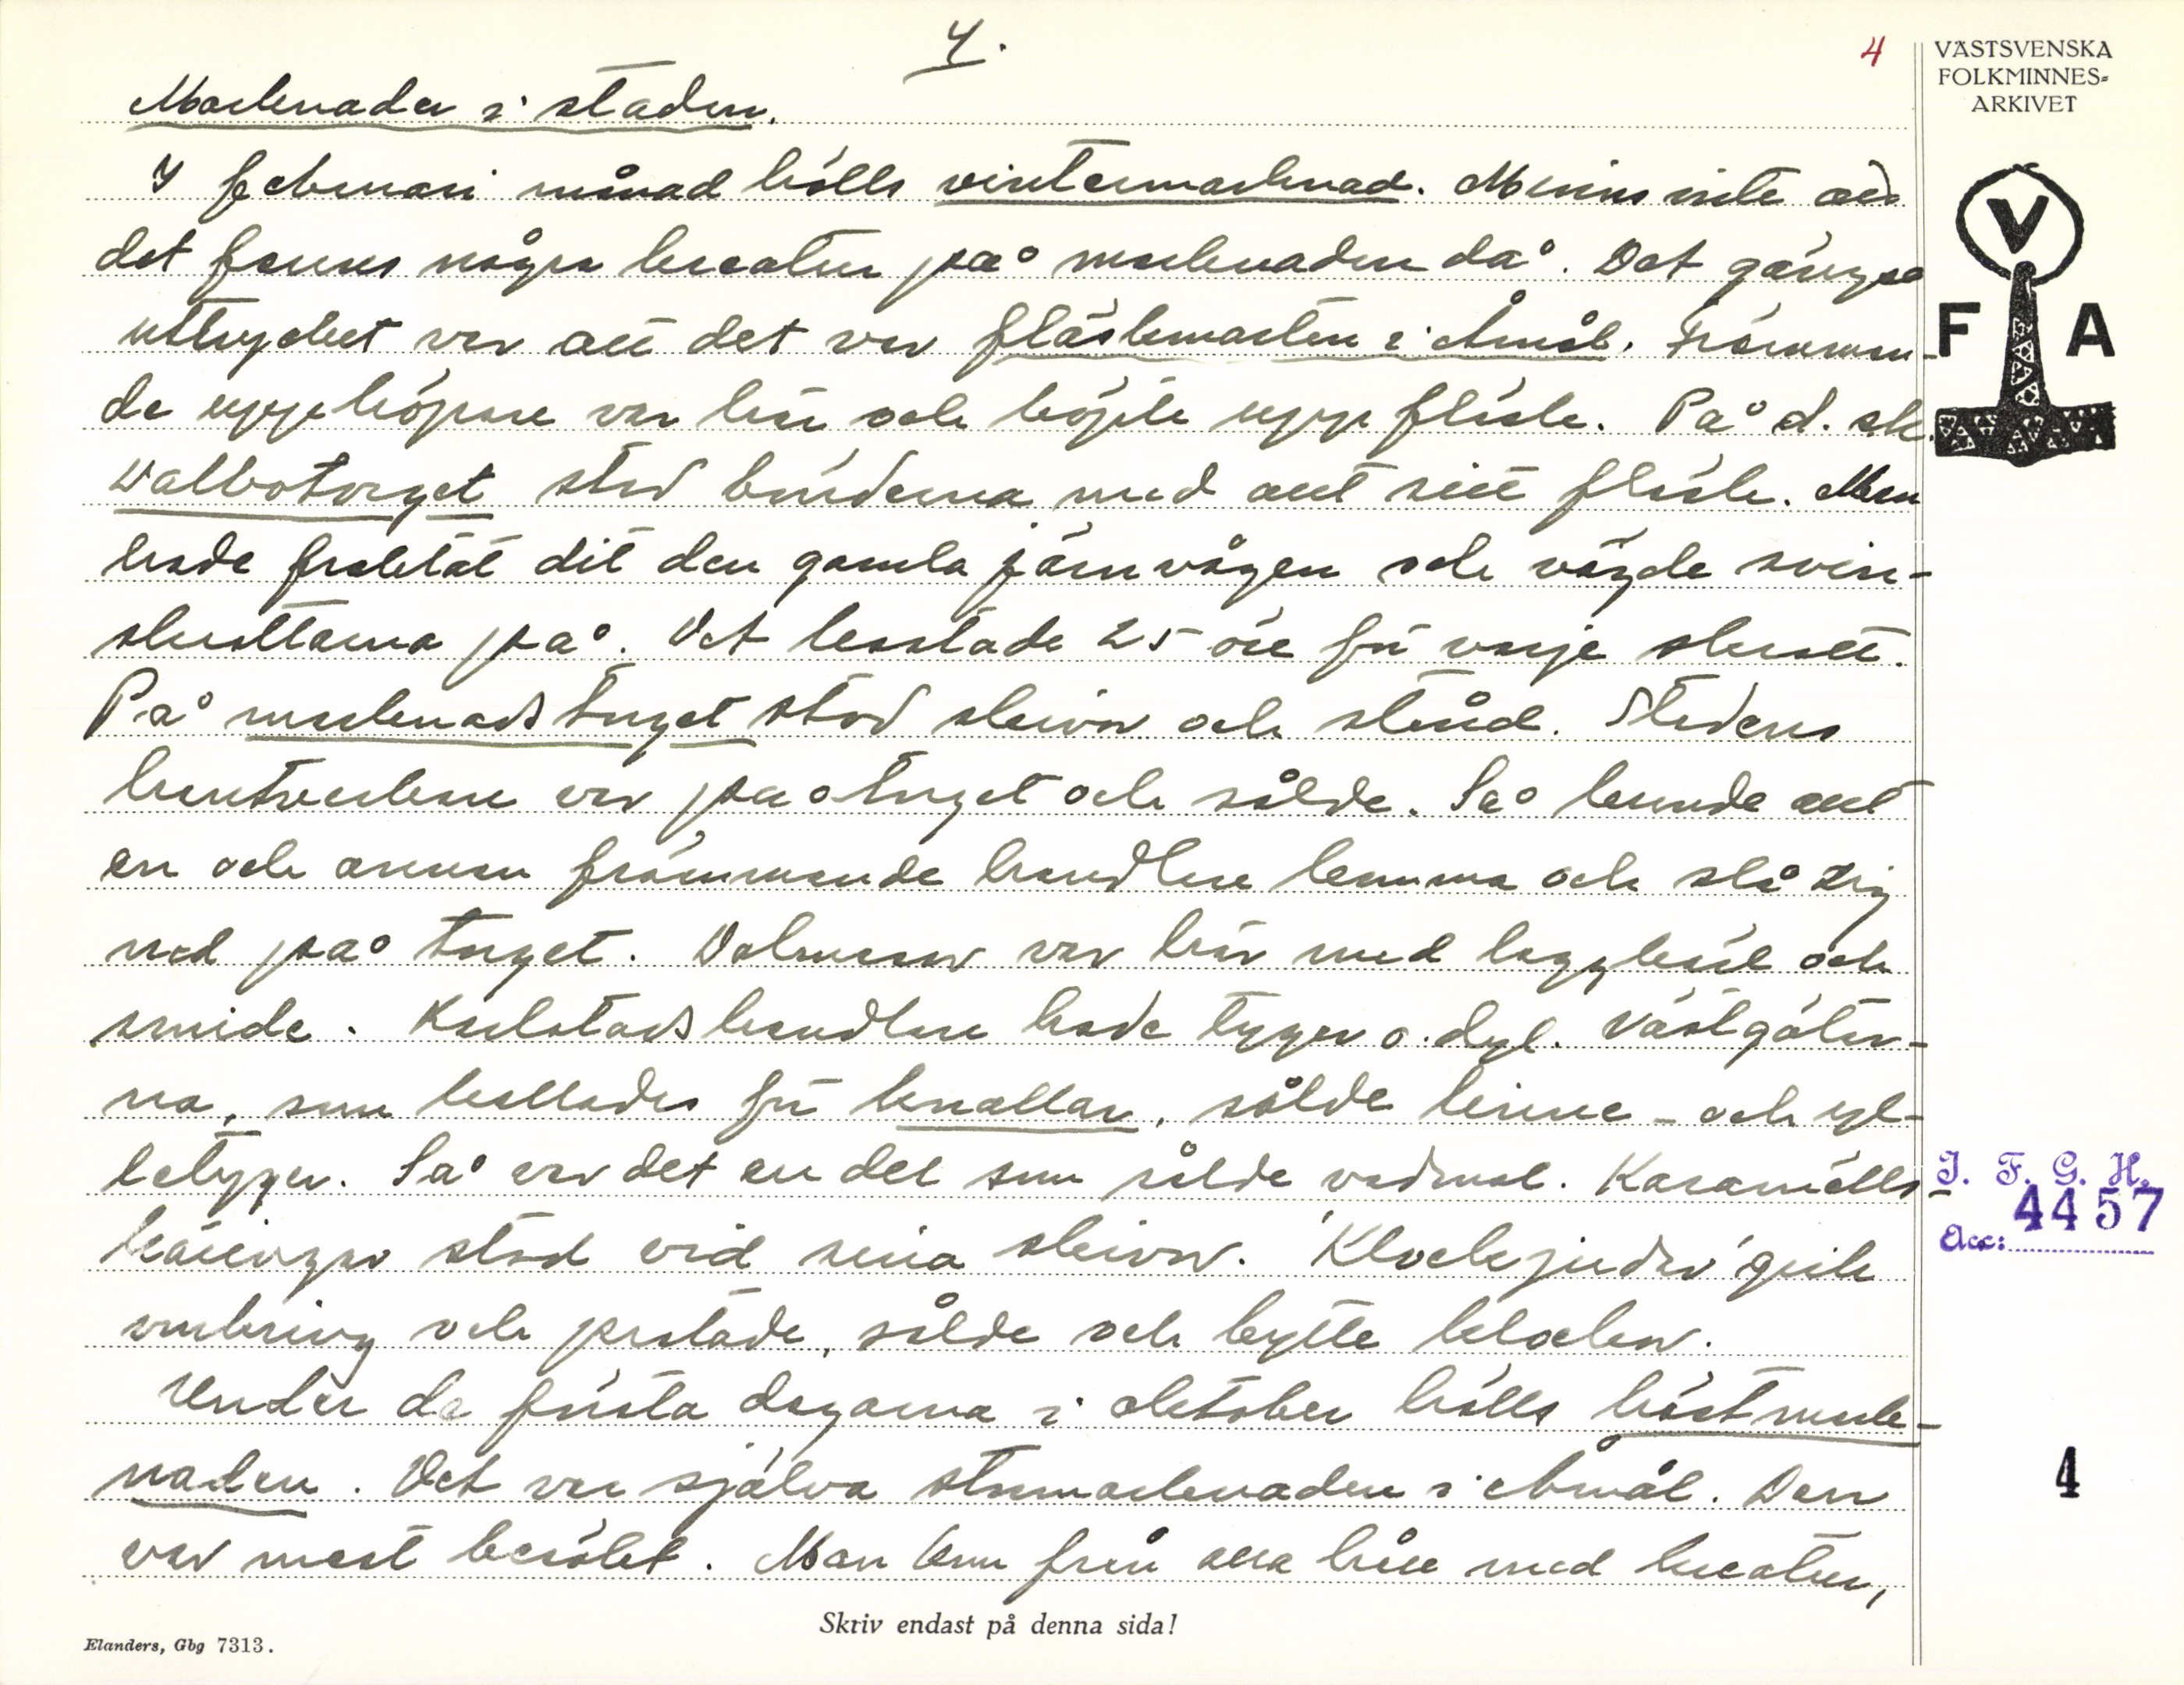 4.
4
VÄSTSVENSKA
FOLKMINNES-
ARKIVET
Marknader i staden.
I februari månad hölls vintermarknad. Minns inte att
det fanns några kreatur på marknaden då. Det gängse
uttrycket var att det var fläskmarten i Åmål. Främman-
de uppköpare var här och köpte upp fläsk. På d. sk.
Dalbotorget stod bönderna med allt sitt fläsk. Man
hade fraktat dit den gamla järnvågen och vägde svin-
skrottarna på. Det kostade 25 öre för varje skrott.
På marknadstorget stod skivor och stånd. Stadens
hantverkare var på torget och sålde. Så kunde allt
en och annan främmande handlare komma och slå sig
ned på torget. Dalmasar var här med laggkärl och
smide. Karlstadshandlare hade tyger o. dyl. Västgötar-
na, som kallades för knallar, sålde linne- och yl-
letyger. Så var det en del som sålde vadmal. Karamells-
käringar stod vid sina skivor. 'Klockjudar' gick
omkring och pratade, sålde och bytte klockor.
Under de första dagarna i oktober hölls höstmark-
naden. Det var själva stormarknaden i Åmål. Den
var mest besökt. Man kom från alla håll med kreatur,
V
F A
I. F. G. H.
4457
Acc:
4
Skriv endast på denna sida!
Elanders, Gbg 7313.